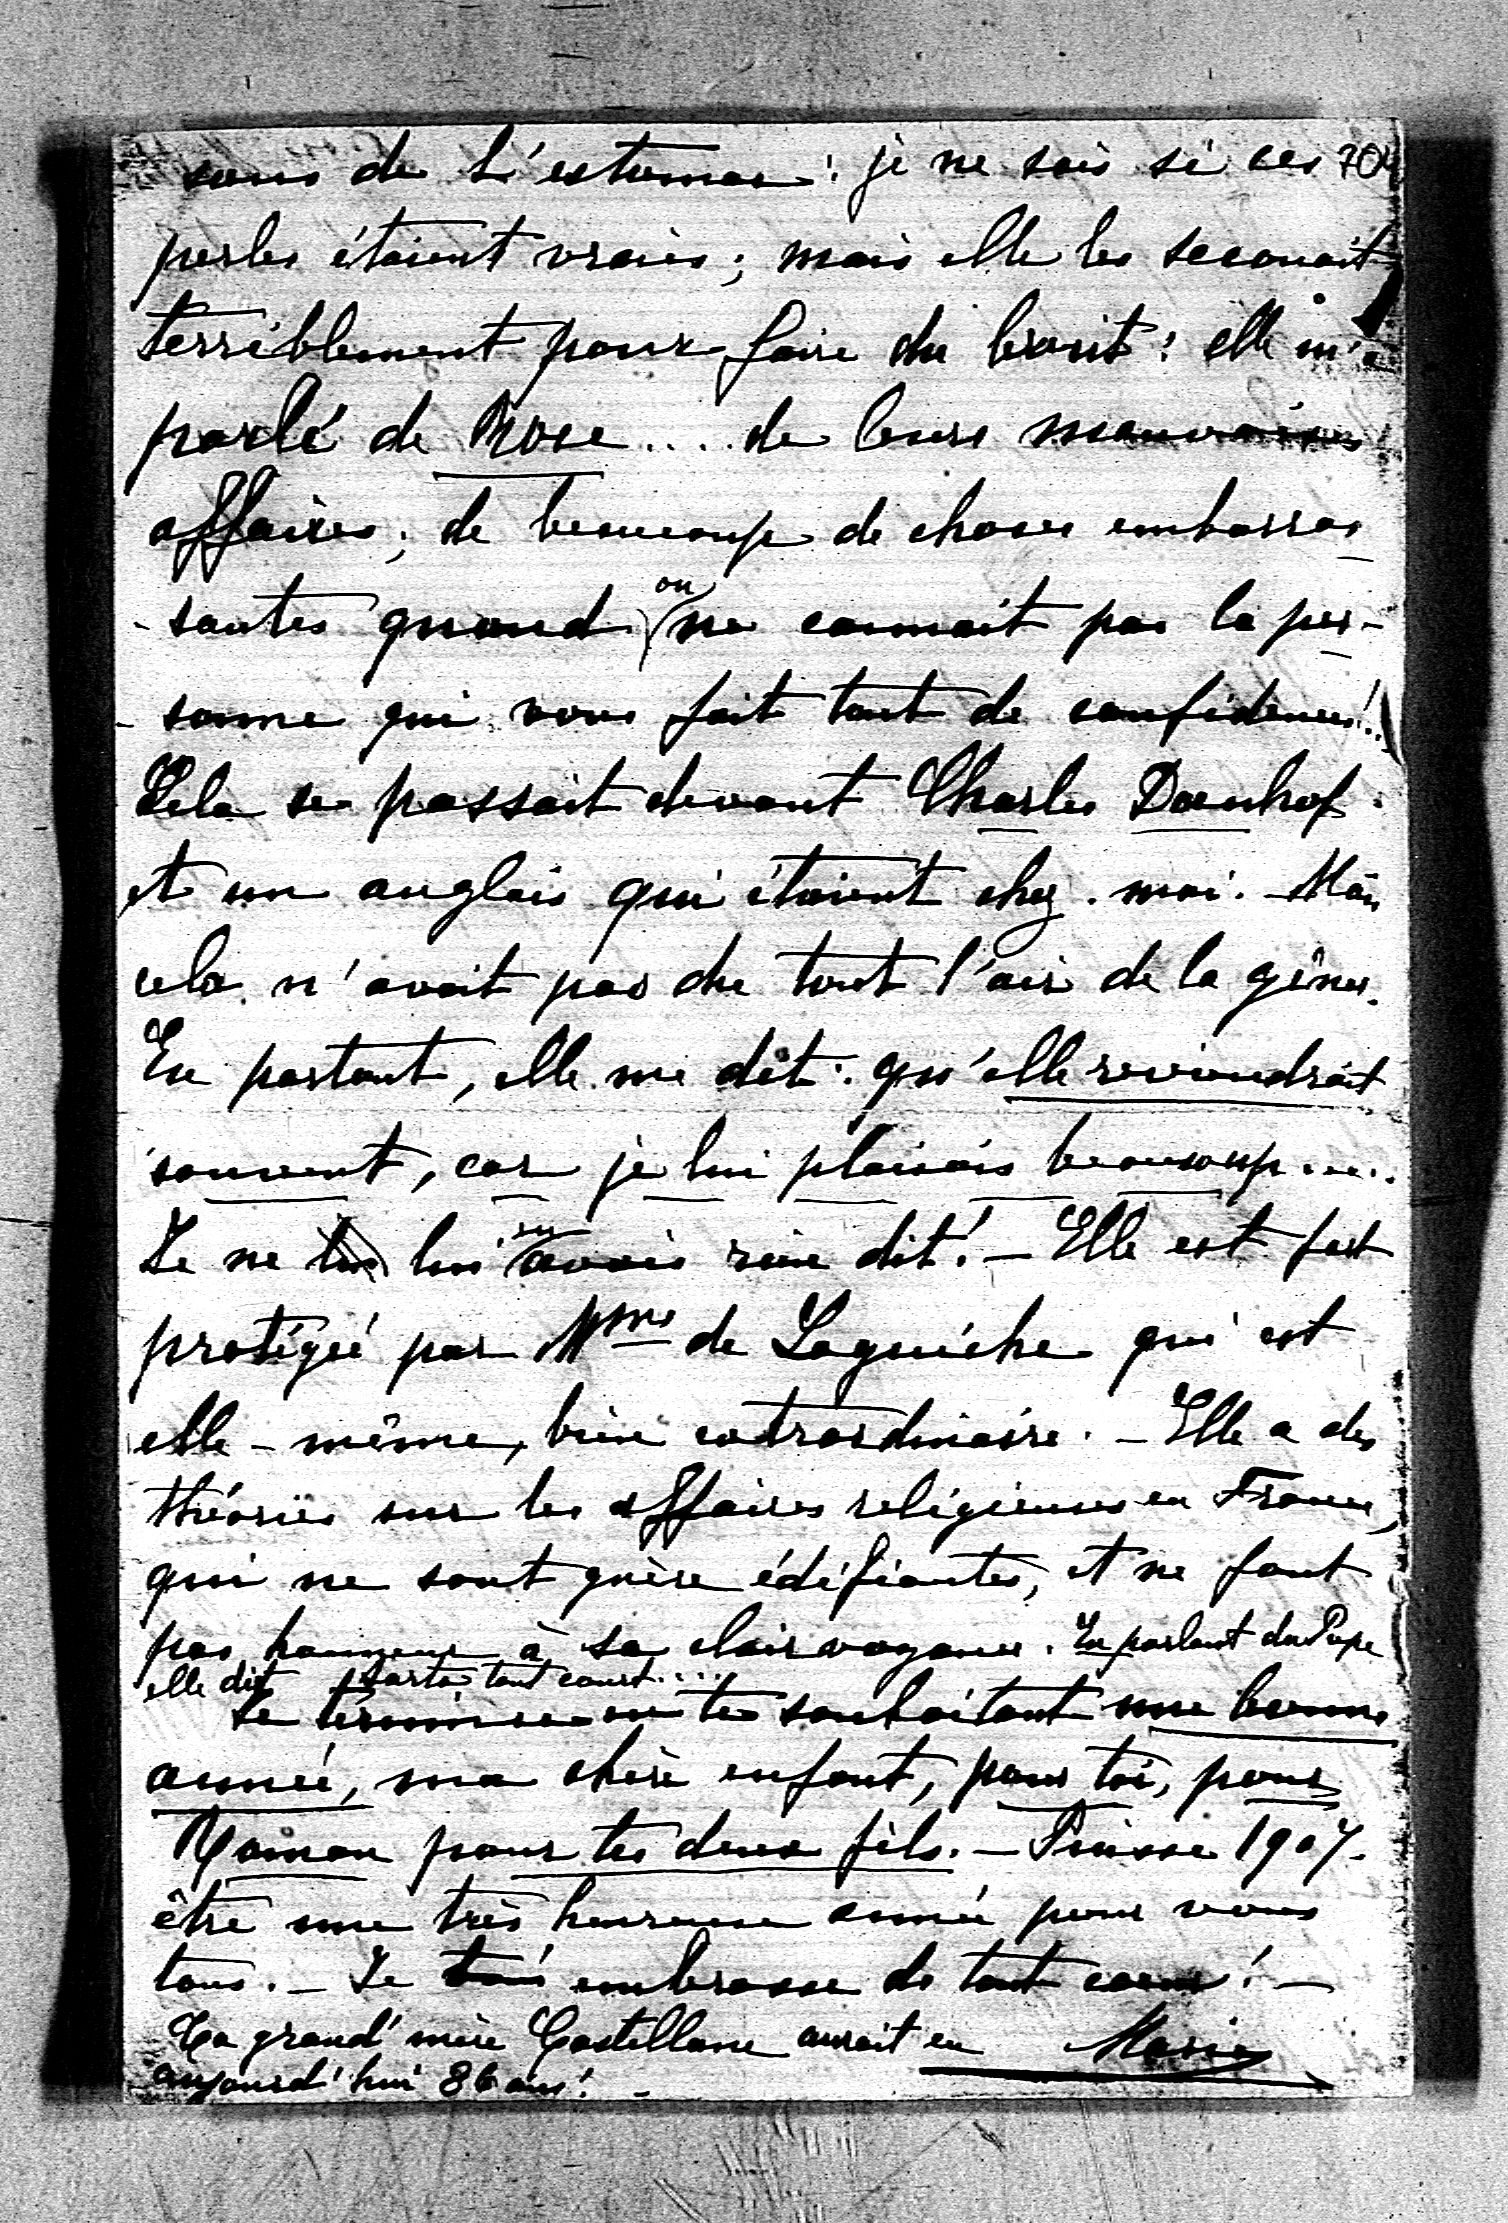 sous de L'estomac : je ne sais si ces 704
perles étaient vraies ; mais elle les secouait
terriblement pour faire du bruit : elle m'a
parlé de Rose .... de leurs mauvaises
affaires, de beaucoup de choses embarras
- santes quand on ne connait pas la per-
- sonne qui vous fait tant de confidences!..
Cela se passait devant Charles Doenhof
et un anglais qui étaient chez moi. - Mais
cela n'avait pas du tout l'air de la gêner.
En partant, elle me dit : qu'elle reviendrait
souvent, car je lui plaisais beaucoup....
Je ne lui en avais rien dit! - Elle est fort
protégée par Mme de Laguiche qui est
elle-même, bien extraordinaire. - Elle a des
théories sur les affaires religieuses en France,
qui ne sont guère édifiantes, et ne font
pas honneur à sa clairvoyance. En parlant du Pape
elle dit Sarto tout court....
Je termine en te souhaitant une bonne
année, ma chère enfant, pour toi, pour
Maman pour tes deux fils. - Puisse 1907.
être une très heureuse année pour vous
tous. - Je t'embrasse de tout coeur! -
Ta grand'mère Castellane aurait eu Marie
aujourd'hui 86 ans! -